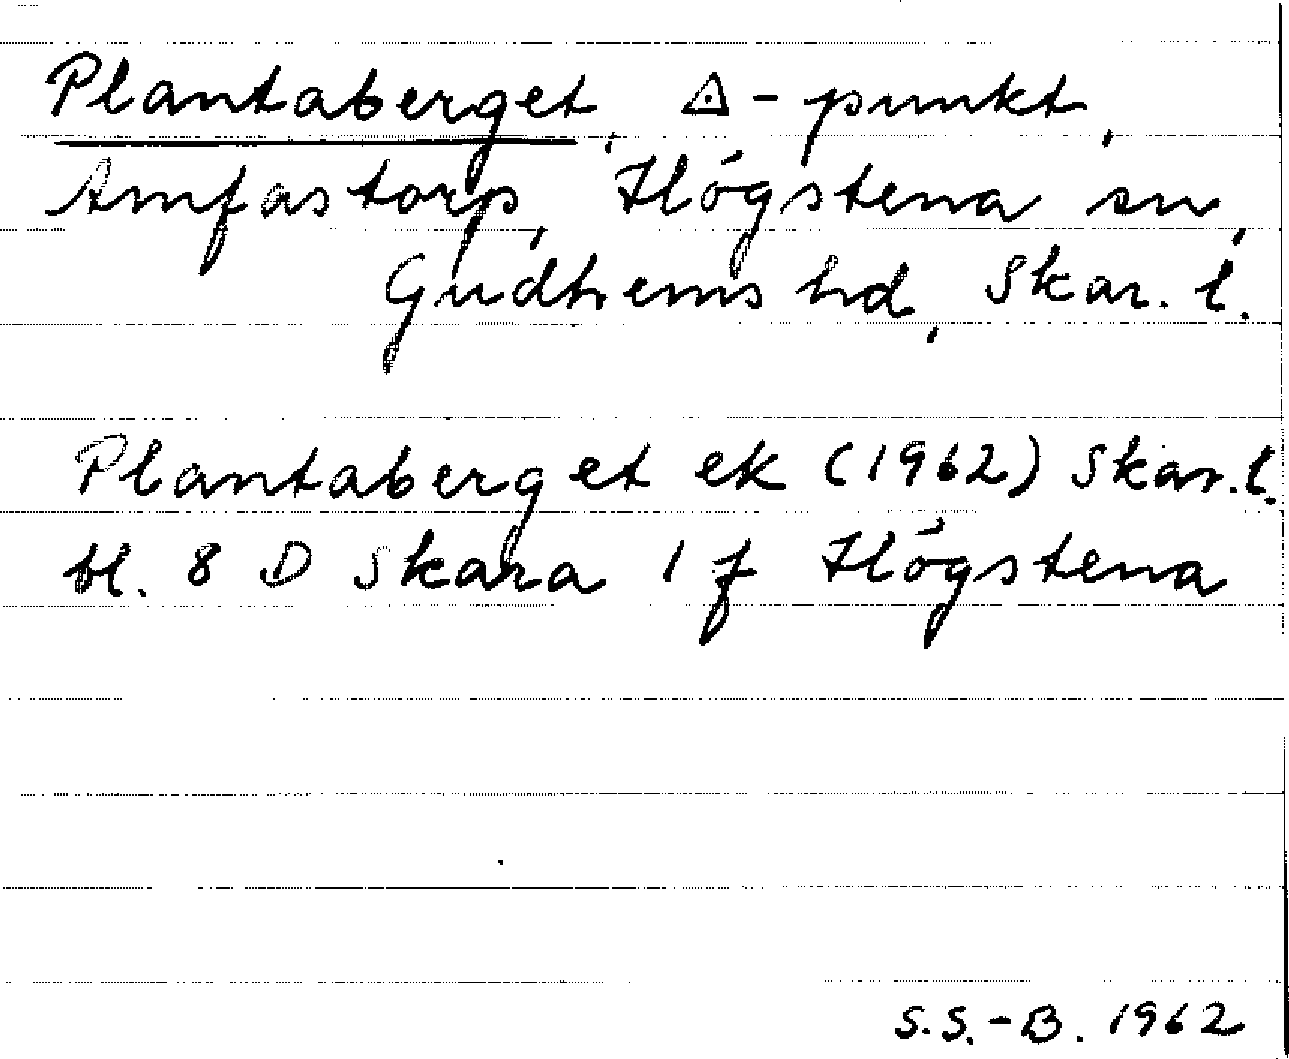 Plantaberget, △-punkt,
Amfastorp, Högstena sn,
Gudhems hd, Skar. l.
Plantaberget ek (1962) Skar. l.
bl. 8 D Skara 1 f Högstena
S.S.-B. 1962